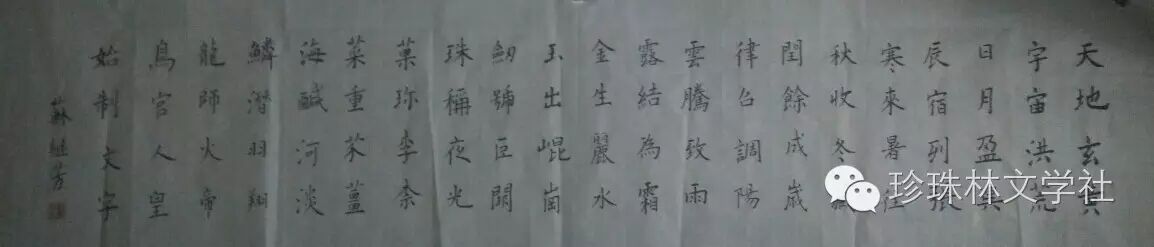 天地玄黃
宇宙洪荒
日月盈
辰宿列張
寒來暑往
秋收冬藏
閏餘成嵗
律召調陽
雲騰致雨
露結為霜
金生麗水
玉出崐崗
劒號巨闕
珠稱夜光
菓珎李柰
菜重芥薑
海鹹河淡
鱗潜羽翔
龍師火帝
鳥官人皇
始制文字
蘇継芳
珍珠林文学社